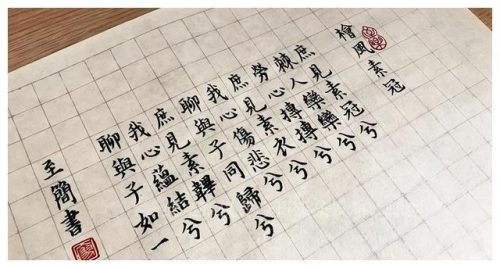 檜風 素冠
庶見素冠兮
棘人欒欒兮
勞心慱慱兮
庶見素衣兮
我心傷悲兮
聊與子同歸兮
庶見素韠兮
我心蘊結兮
聊與子如一
至簡書